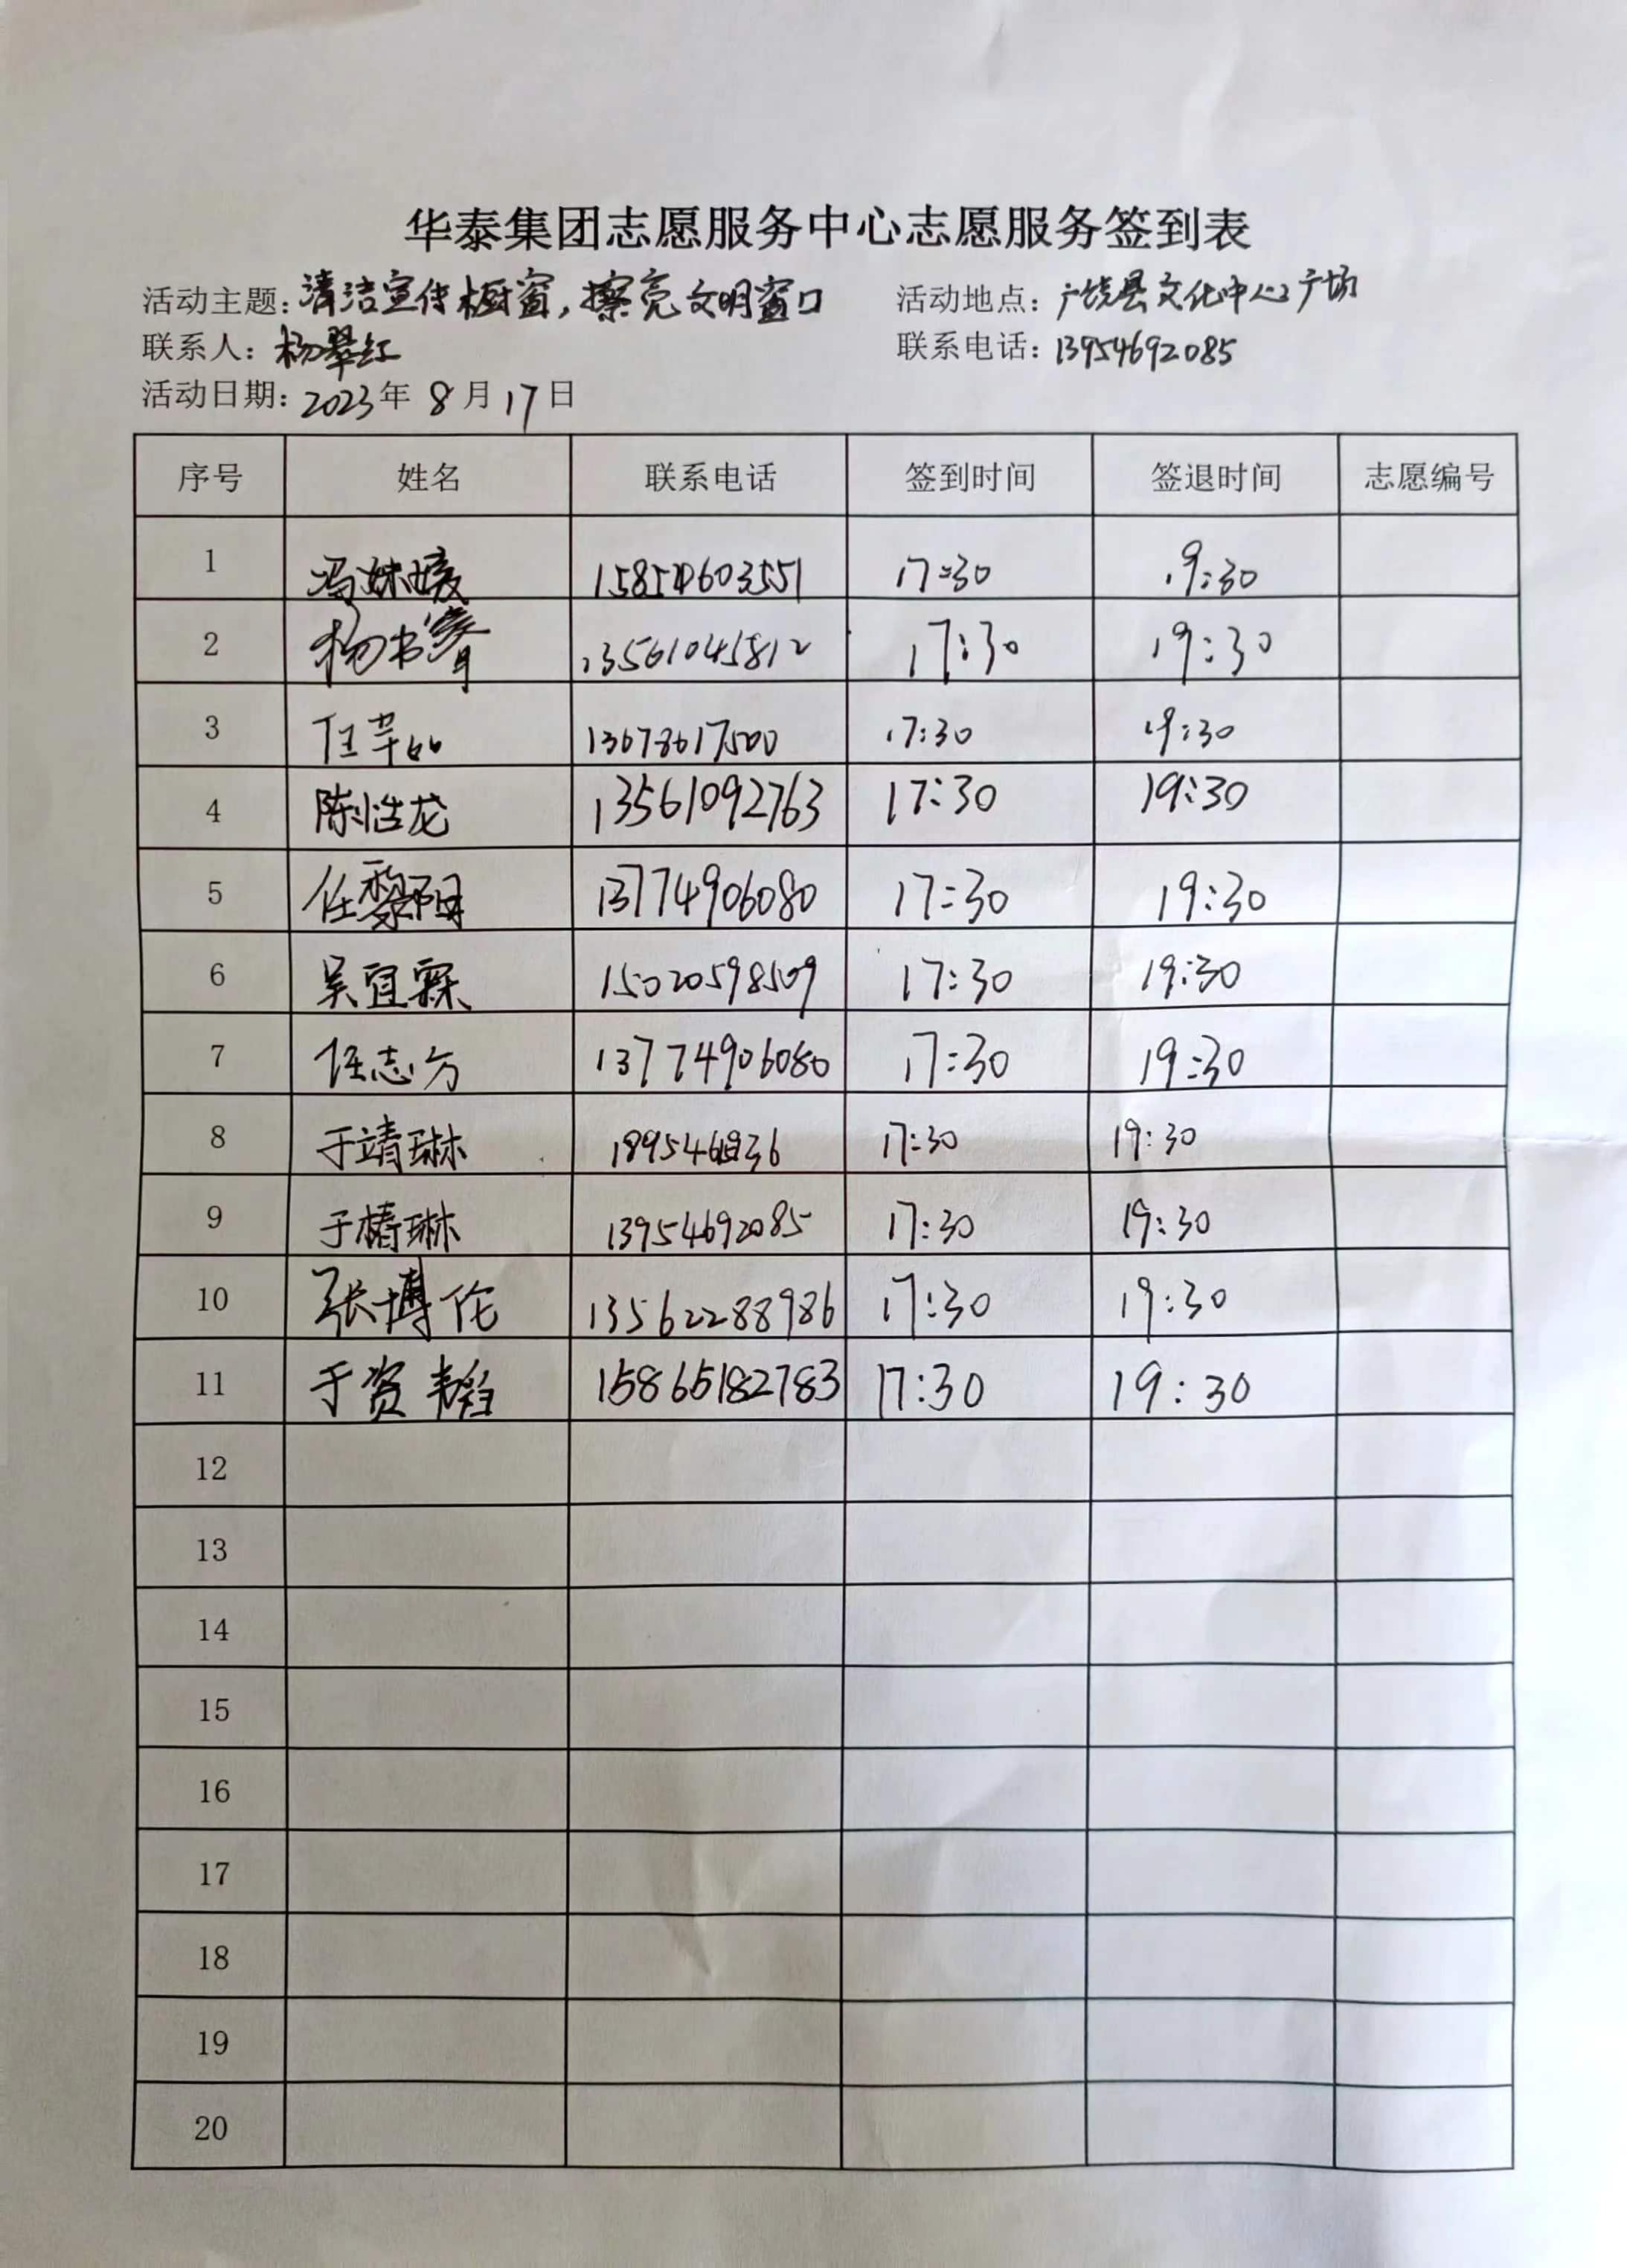 华泰集团志愿服务中心志愿服务签到表
活动主题：清洁宣传橱窗，擦亮文明窗口 活动地点：广饶县文化中心广场
联系人：杨翠红 联系电话：13954692085
活动日期：2023年8月17日
序号 姓名 联系电话 签到时间 签退时间 志愿编号
1 冯姝媛 17:30 19:30
2 杨书睿 13561045812 17:30 19:30
3 任芊 17:30 19:30
4 陈浩龙 13561092763 17:30 19:30
5 任黎阳 13774906080 17:30 19:30
6 吴宜霖 15020598509 17:30 19:30
7 任志方 13774906080 17:30 19:30
8 于靖琳 17:30 19:30
9 于椿琳 13954692085 17:30 19:30
10 张博伦 13562288986 17:30 19:30
11 于资韬 15865182783 17:30 19:30
12
13
14
15
16
17
18
19
20